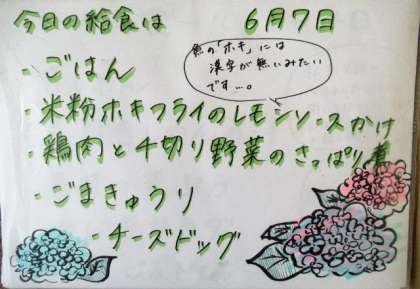 今日の給食は 6月7日
魚の「ホキ」には
漢字が無いみたい
です…。
・ごはん
・米粉ホキフライのレモンソースかけ
・鶏肉と千切り野菜のさっぱり煮
・ごまきゅうり
・チーズドッグ